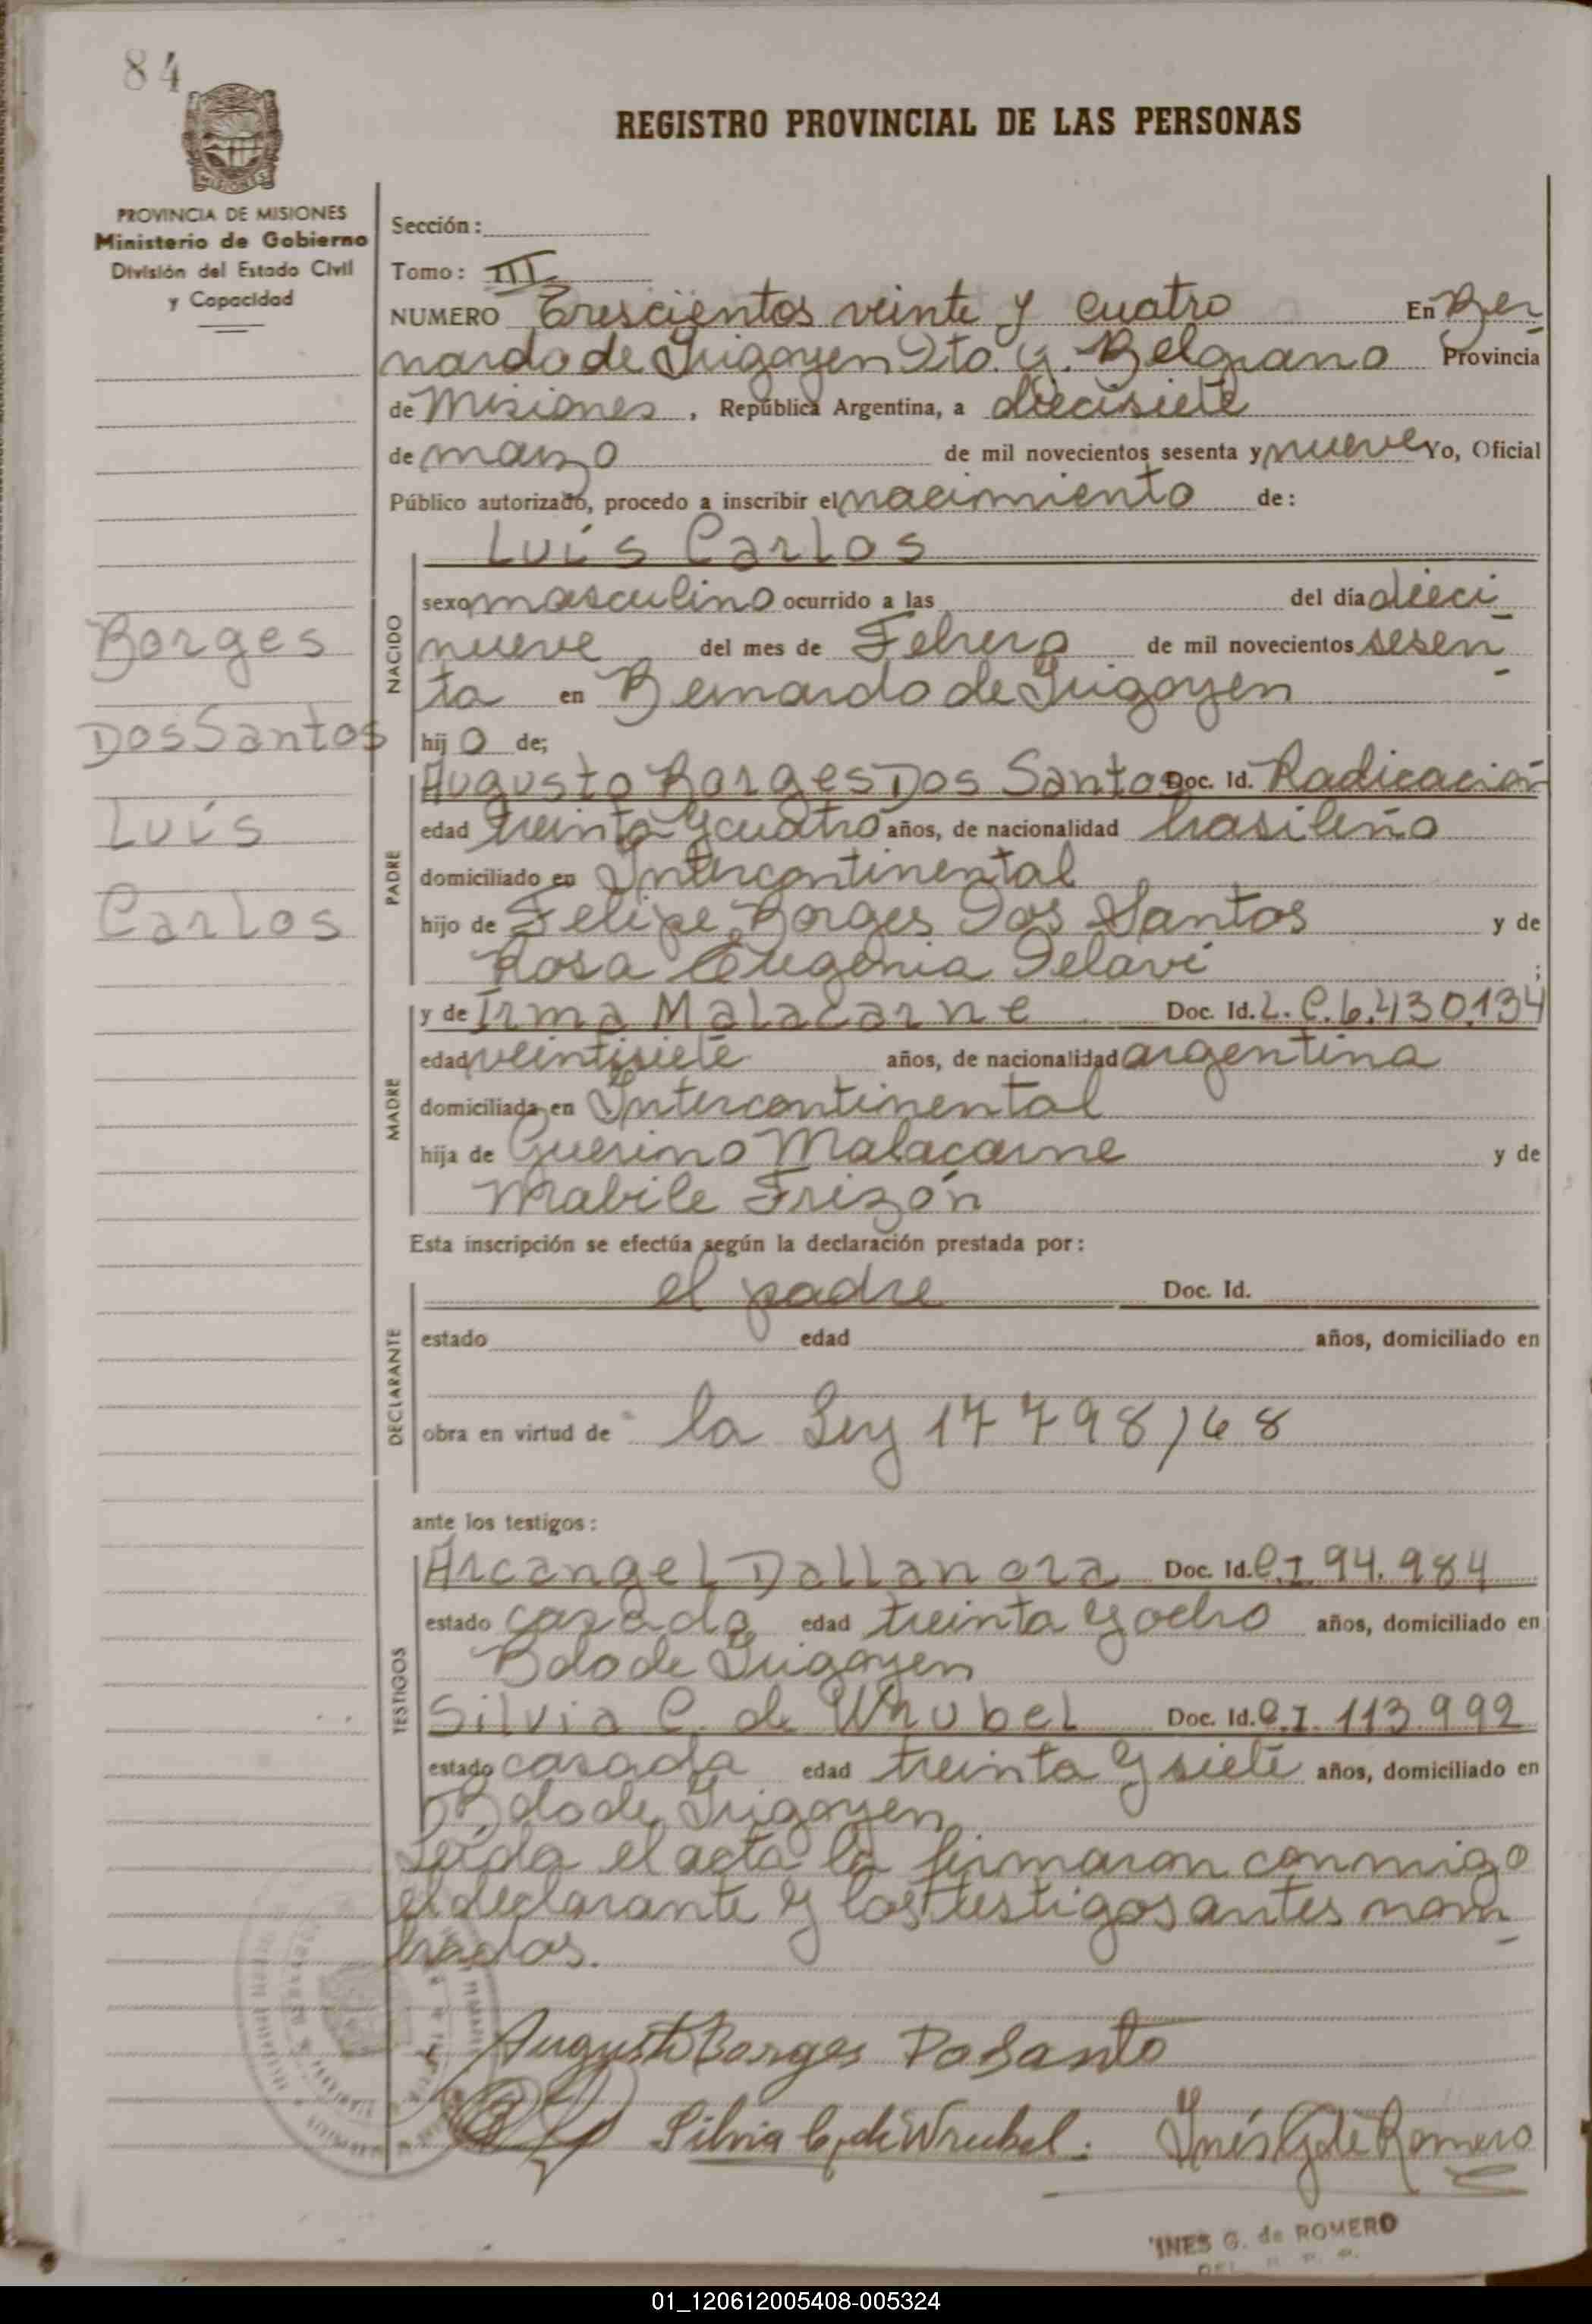 84
REGISTRO PROVINCIAL DE LAS PERSONAS
MISIONES
PROVINCIA DE MISIONES
Ministerio de Gobierno
División del Estado Civil
y Capacidad
Sección:
Tomo: III
NUMERO Trescientos veinte y cuatro En Ber
nardo de Irigoyen Dto. G. Belgrano Provincia
de Misiones, República Argentina, a diecisiete
de marzo de mil novecientos sesenta y nueve Yo, Oficial
Público autorizado, procedo a inscribir el nacimiento de:
Luis Carlos
NACIDO
sexo masculino ocurrido a las del día dieci
nueve del mes de Febrero de mil novecientos sesen
ta en Bernardo de Irigoyen
hijo de;
Borges
Dos Santos
Luis
Carlos
PADRE
Augusto Borges Dos Santos Doc. Id. Radicación
edad treinta y cuatro años, de nacionalidad brasileño
domiciliado en Intercontinental
hijo de Felipe Borges Dos Santos y de
Rosa Eugenia Delavi;
MADRE
y de Irma Malacarne Doc. Id. L.C. 6.430.134
edad veintisiete años, de nacionalidad argentina
domiciliada en Intercontinental
hija de Guerino Malacarne y de
Mabile Frizón
Esta inscripción se efectúa según la declaración prestada por:
DECLARANTE
el padre Doc. Id.
estado edad años, domiciliado en
obra en virtud de la Ley 17798/68
ante los testigos:
TESTIGOS
Arcangel Dallanora Doc. Id. C.I 94.984
estado casado edad treinta y ocho años, domiciliado en
Bdo de Irigoyen
Silvia C. de Wrubel Doc. Id. C.I. 113.992
estado casada edad treinta y siete años, domiciliado en
Bdo de Irigoyen
Leída el acta la firmaron conmigo
el declarante y los testigos antes nom
brados.
Augusto Borges Dosanto
Silvia C. de Wrubel. Inés G de Romero
INES G. de ROMERO
01_120612005408-005324